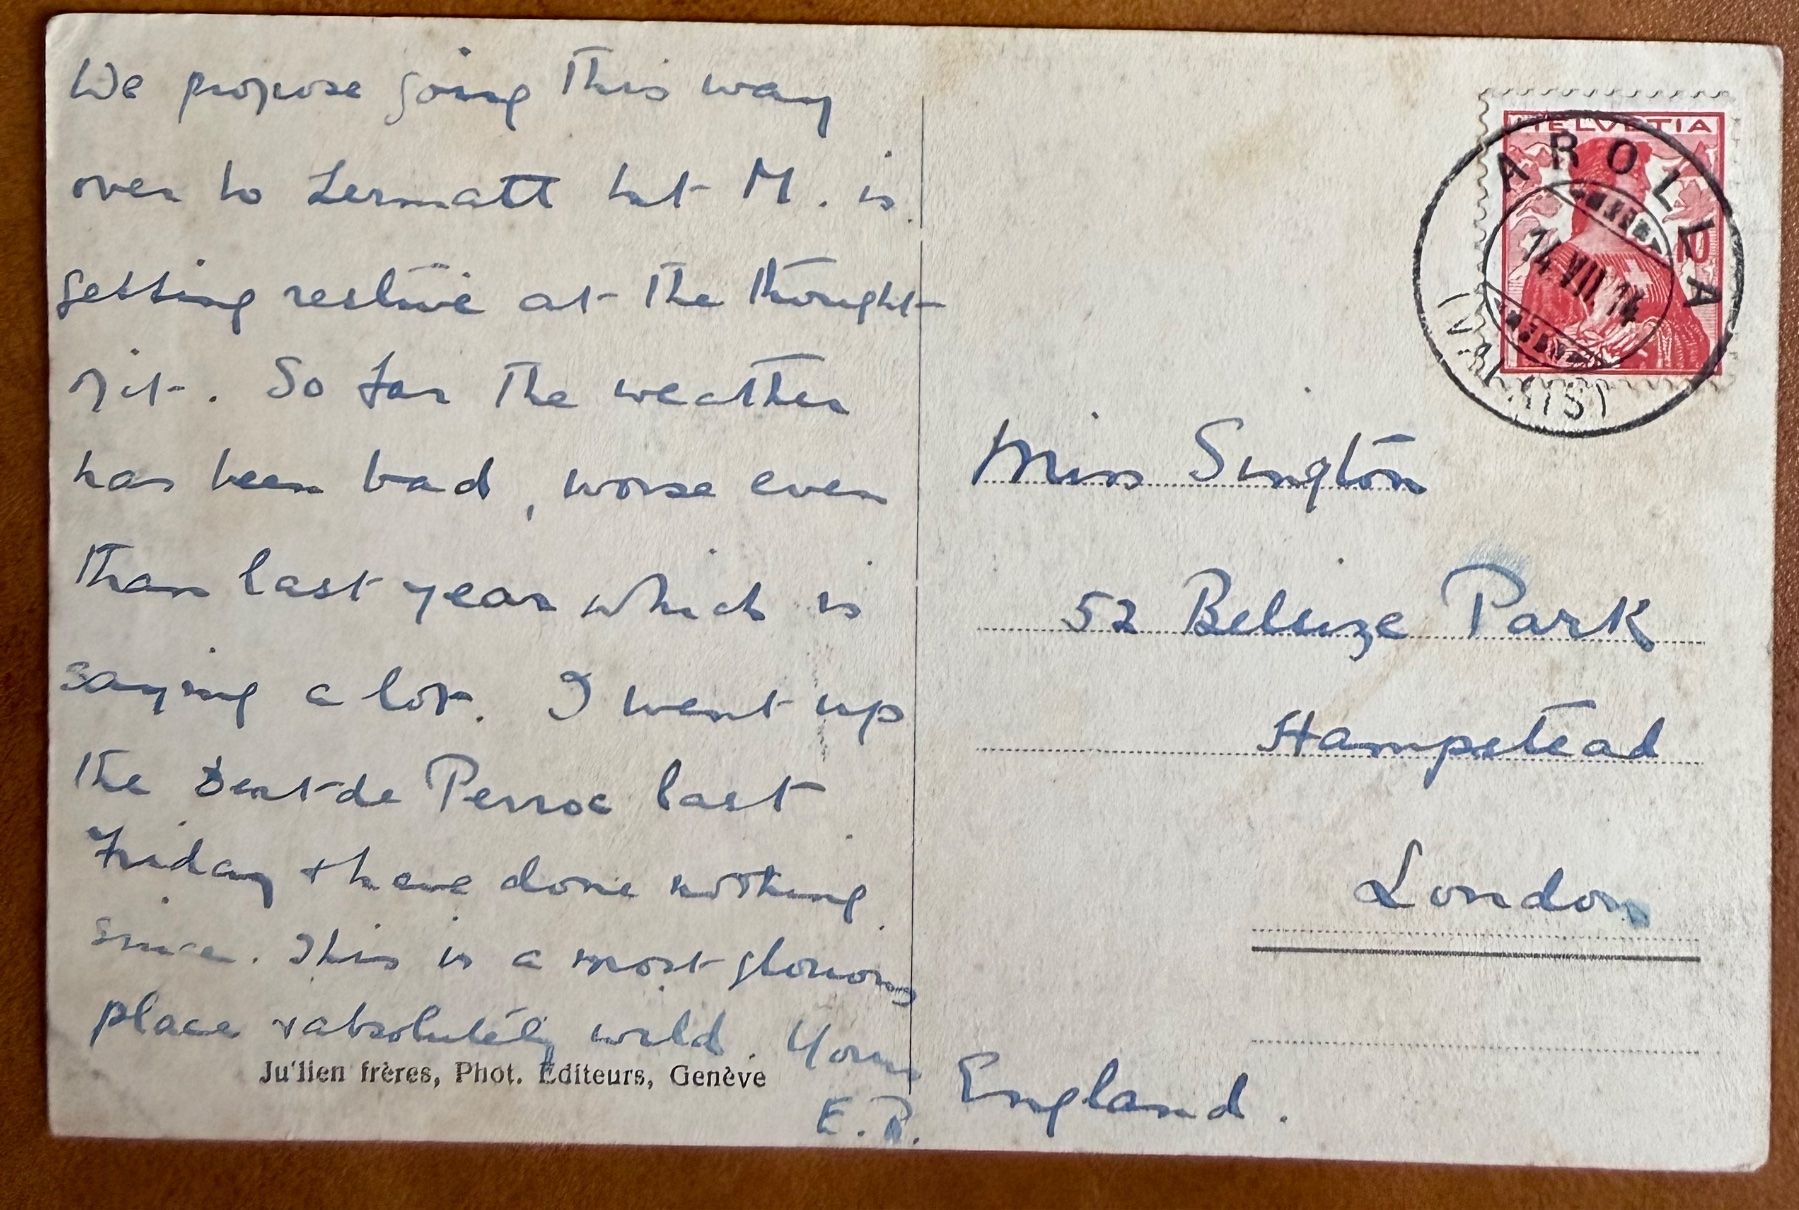 We propose going this way
over to Zermatt but M. is
getting restive at the thought
of it. So far the weather
has been bad, worse even
than last year which is
saying a lot. I went up
the Dent de Perroc last
Friday & have done nothing
since. This is a most glorious
place & absolutely wild. Yours
E. R.
Julien frères, Phot. Editeurs, Genève
HELVETIA
10
AROLLA
14 VII 14
(VALAIS)
Miss Sington
52 Belsize Park
Hampstead
London
England.